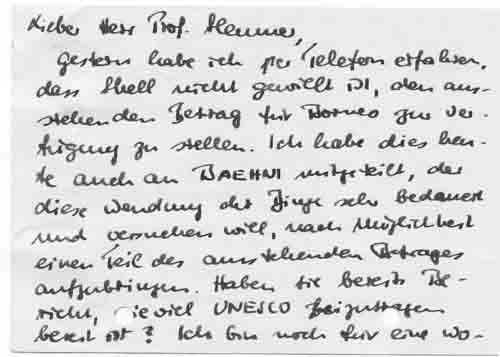 Lieber Herr Prof. Hemmer,
gestern habe ich per Telefon erfahren,
dass Shell nicht gewillt ist, den aus-
stehenden Betrag für Borneo zur Ver-
fügung zu stellen. Ich habe dies heu-
te auch an BAEHNI mitgeteilt, der
diese Wendung der Dinge sehr bedauert
und versuchen will, nach Möglichkeit
einen Teil des ausstehenden Betrages
aufzubringen. Haben Sie bereits Be-
richt, wieviel UNESCO beizutragen
bereit ist? Ich bin noch für eine Wo-